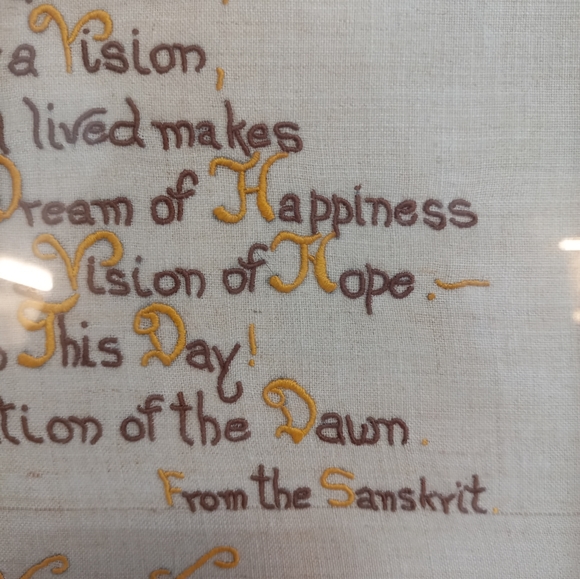 a Vision,
lived makes
Dream of Happiness
Vision of Hope.—
This Day!
tion of the Dawn.
From the Sanskrit.